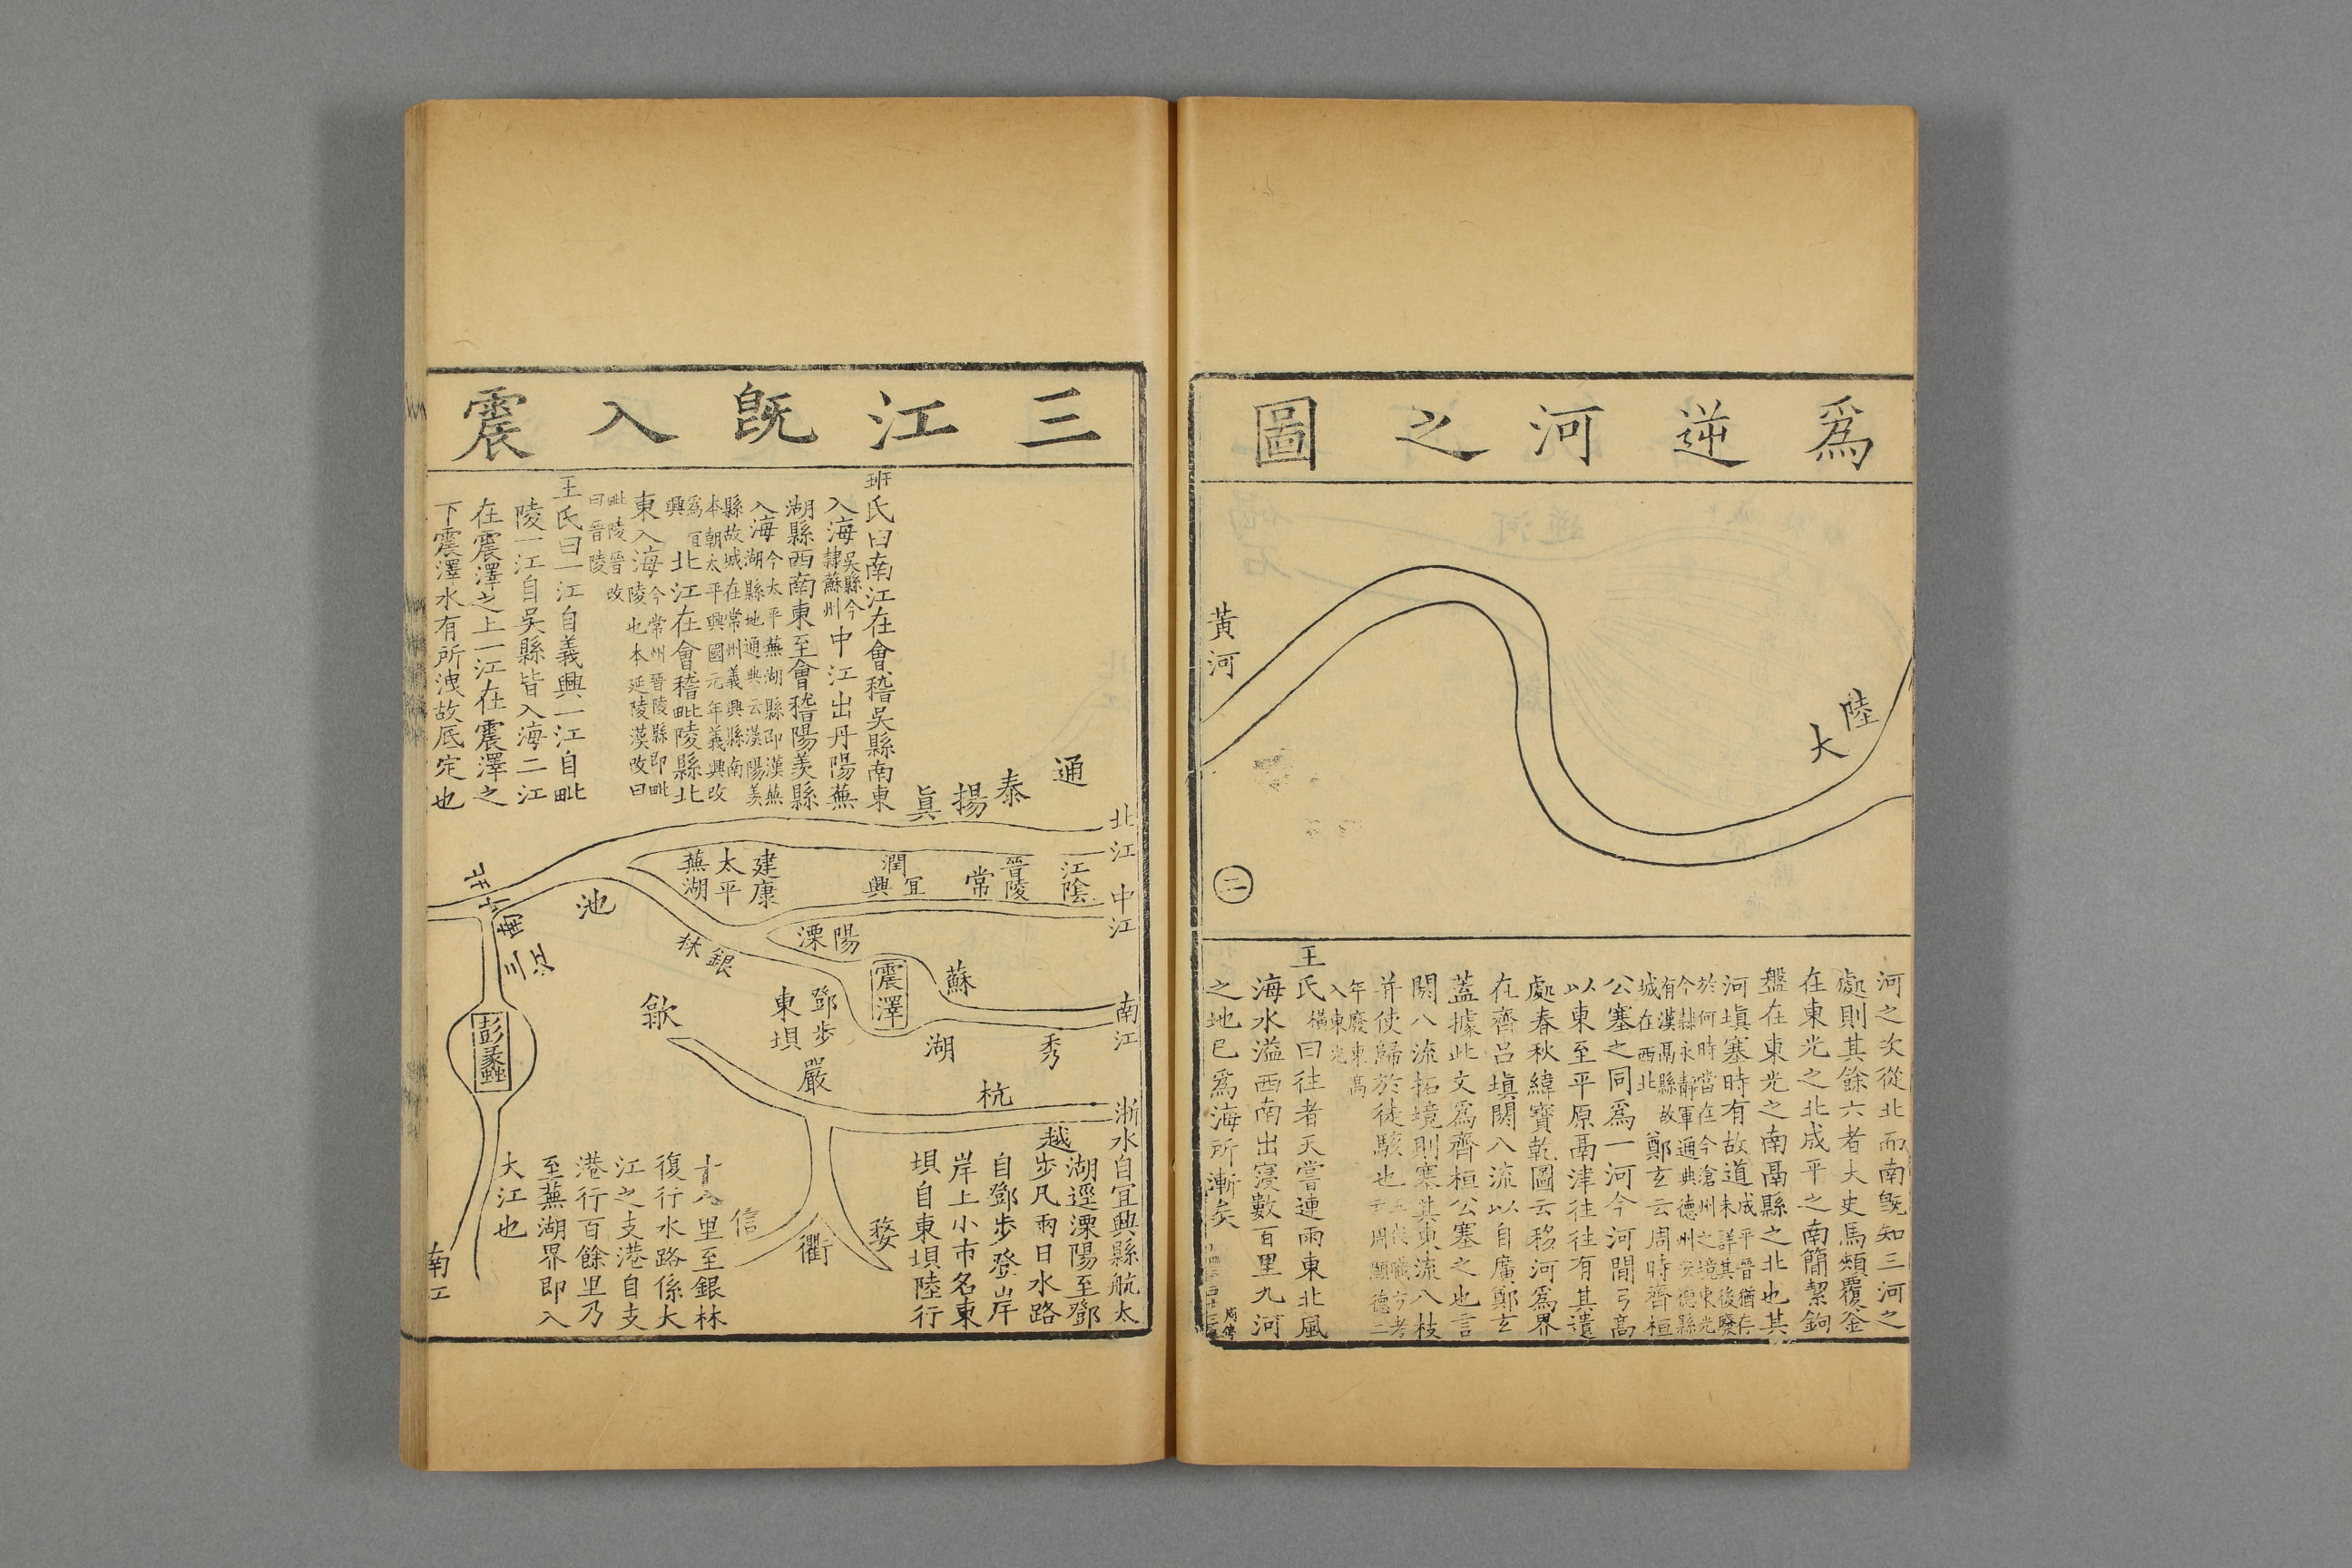 爲逆河之圖
陸大
黃河
二
河之次從北而南旣知三河之
處則其餘六者大史馬頰覆釜
在東光之北成平之南簡絜鉤
盤在東光之南鬲縣之北也其
河塡塞時有故道未詳其後廢
鄭玄云周時齊桓
公塞之同爲一河今河間弓高
以東至平原鬲津往往有其遺
處春秋緯寶乾圖云移河爲界
在齊呂塡閼八流以自廣鄭玄
蓋據此文爲齊桓公塞之也言
閼八流拓境則塞其東流八枝
并使歸於徒駭也
王氏橫曰往者天嘗連雨東北風
海水溢西南出寖數百里九河
之地已爲海所漸矣
三江旣入震
班氏曰南江在會稽吳縣南東
入海吳縣今隸蘇州中江出丹陽蕪
湖縣西南東至會稽陽羨縣
入海今太平蕪湖縣即漢蕪湖縣地通典云漢陽羨
縣故城在常州義興縣南本朝太平興國元年義興改
爲宜興北江在會稽毗陵縣北
東入海今常州晉陵縣即毗陵也本延陵漢改曰
毗陵晉改曰晉陵
王氏曰一江自義興一江自毗
陵一江自吳縣皆入海二江
在震澤之上一江在震澤之
下震澤水有所洩故底定也
通
泰
揚
眞
北江
江陰
晉陵
常
潤
宜興
建康
太平
蕪湖
中江
池
溧陽
銀林
震澤
蘇
南江
秀
湖
鄧步
東壩
歙
嚴
杭
越
彭蠡
三江
信
衢
婺
浙水
自宜興縣航太
湖逕溧陽至鄧
步凡兩日水路
自鄧步登岸
岸上小市名東
壩自東壩陸行
十八里至銀林
復行水路係大
江之支港自支
港行百餘里乃
至蕪湖界即入
大江也
南江